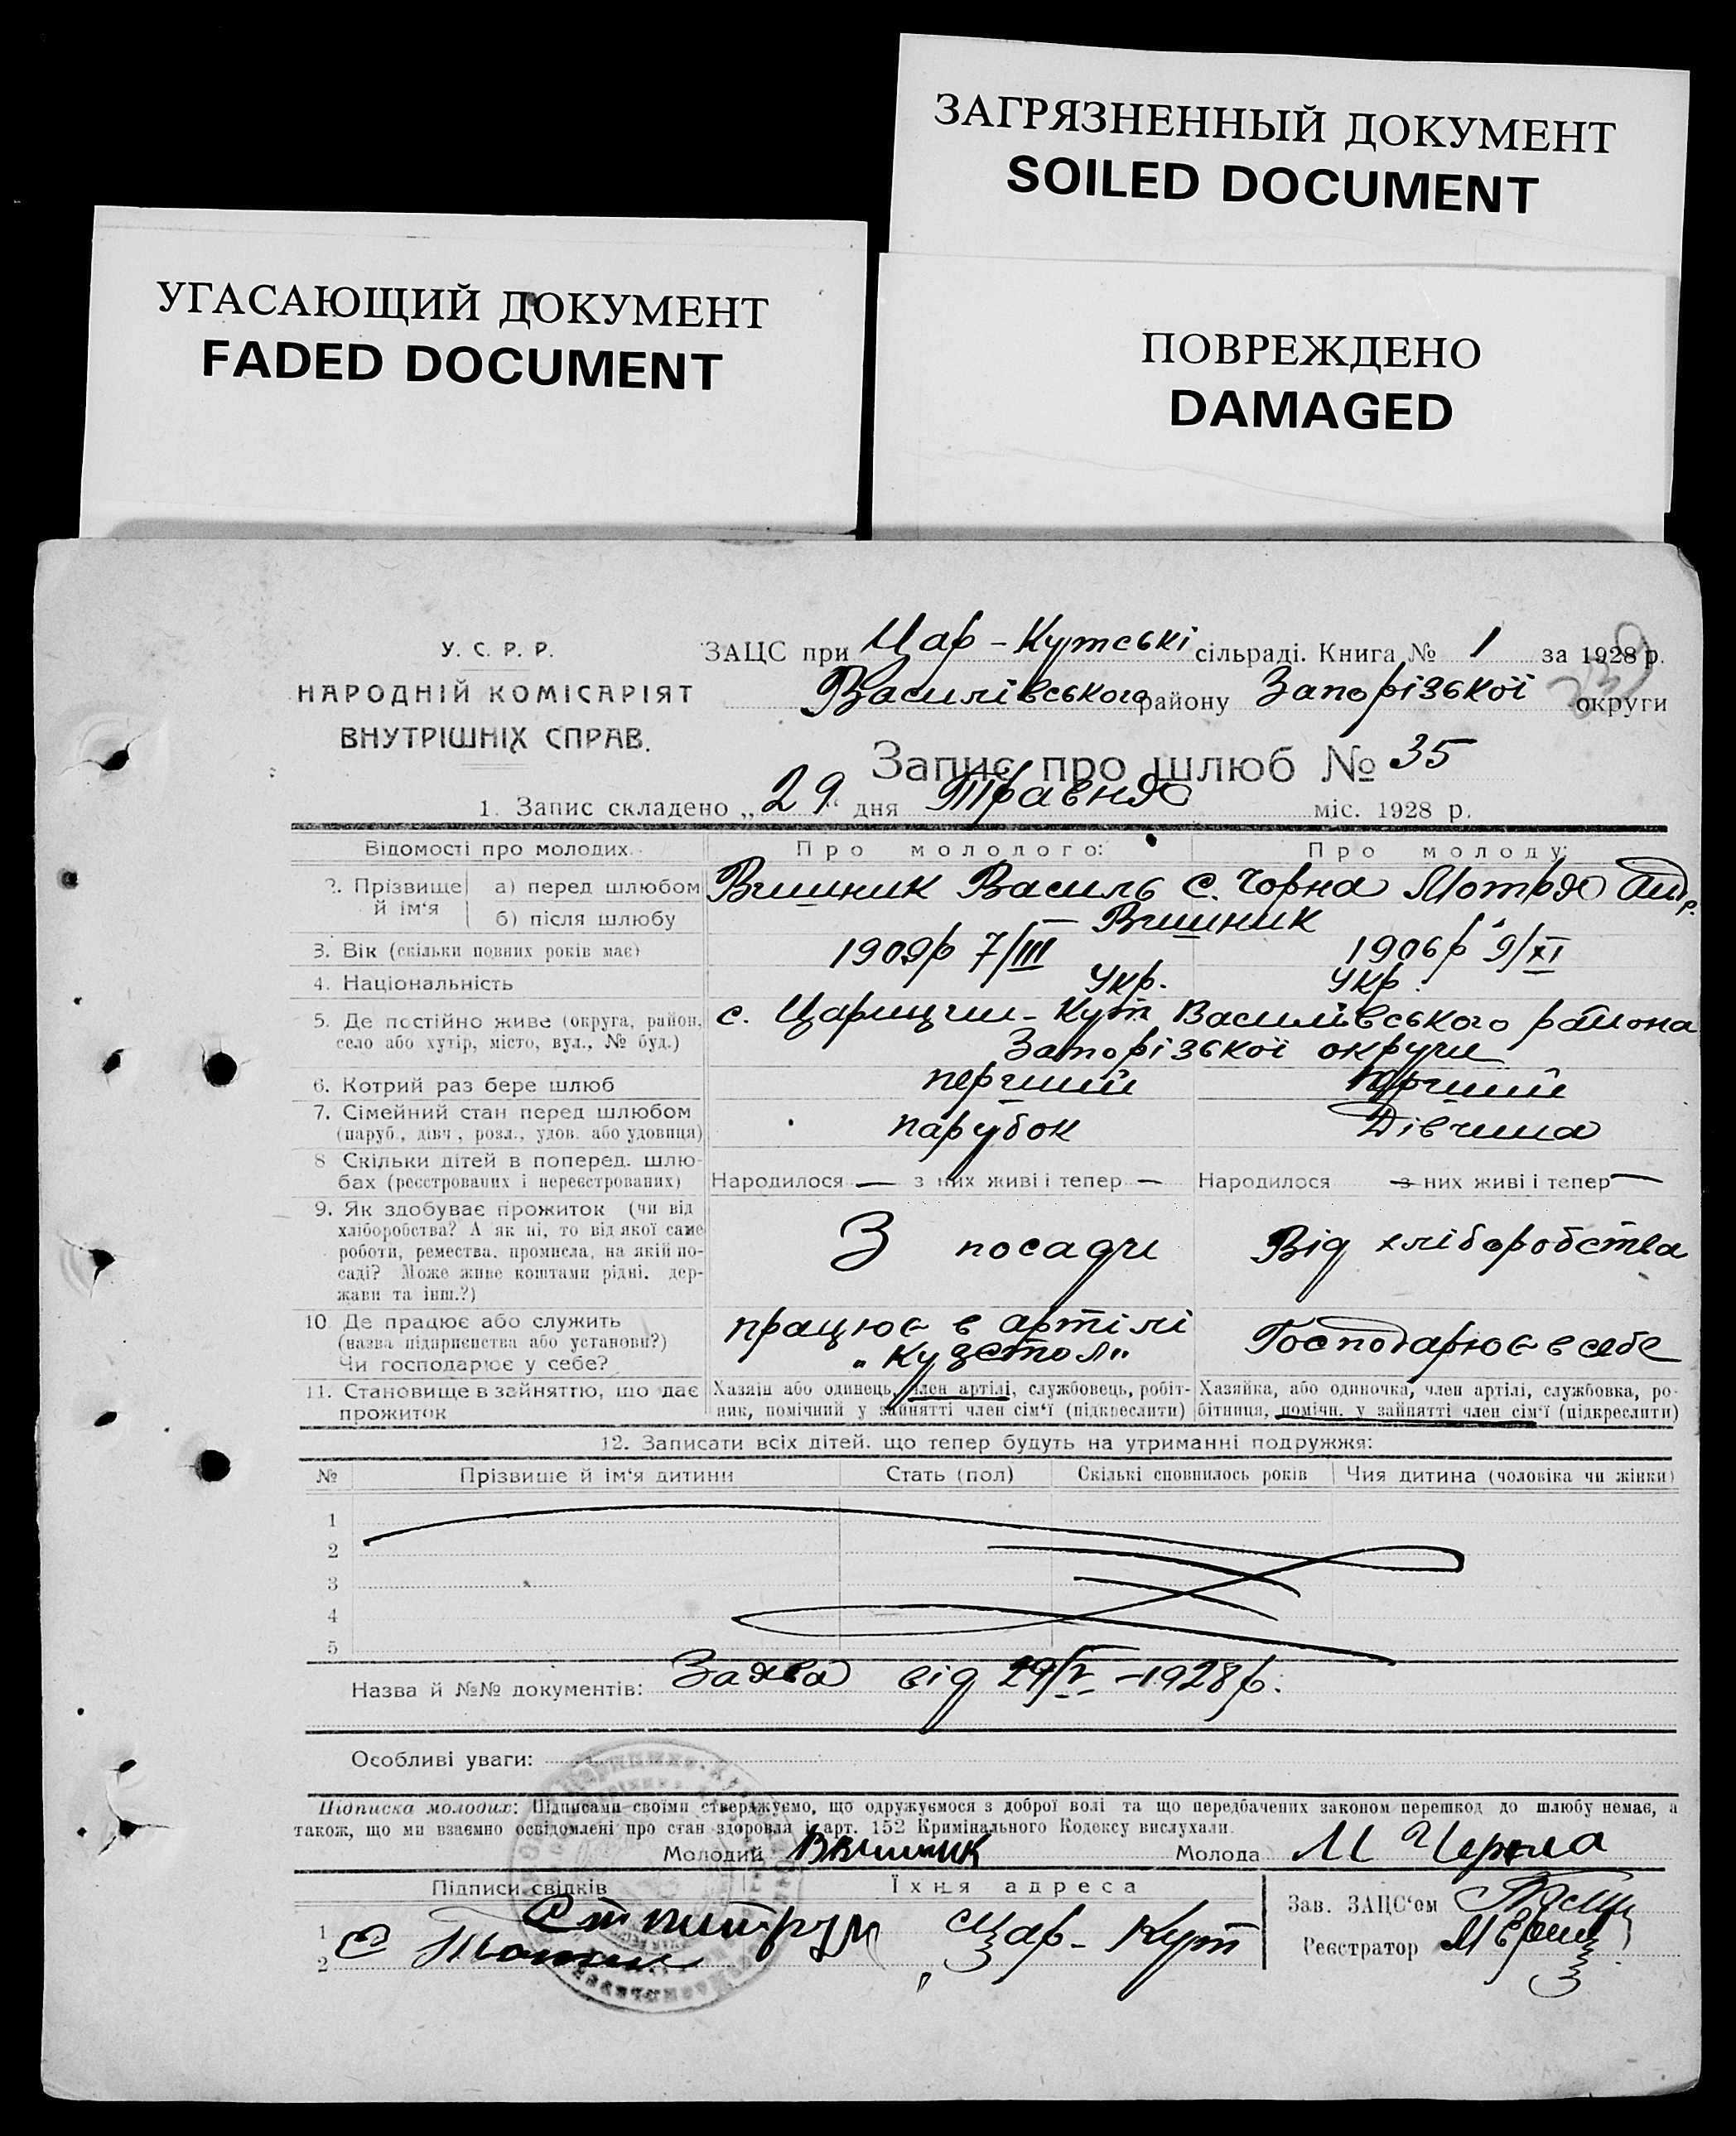 ЗАГРЯЗНЕННЫЙ ДОКУМЕНТ
SOILED DOCUMENT
УГАСАЮЩИЙ ДОКУМЕНТ
FADED DOCUMENT
ПОВРЕЖДЕНО
DAMAGED
У. С. Р. Р.
НАРОДНІЙ КОМІСАРІЯТ
ВНУТРІШНІХ СПРАВ.
ЗАЦС при Цар-Кутські сільраді. Книга № 1 за 1928 р.
Василівського району Запорізької округи
Запис про шлюб № 35
1. Запис складено „29“ дня Травня міс. 1928 р.
Відомості про молодих. Про молодого: Про молоду:
2. Прізвище й ім'я а) перед шлюбом Вишник Василь С. Чорна Мотря Андр.
б) після шлюбу Вишник
3. Вік (скільки повних років має) 1909р 7/III 1906р 9/XI
4. Національність Укр. Укр.
5. Де постійно живе (округа, район, село або хутір, місто, вул., № буд.) с. Царицин-Кут Василівського района
Запорізької округи
6. Котрий раз бере шлюб перший перший
7. Сімейний стан перед шлюбом (паруб., дівч., розл., удов. або удовиця) парубок Дівчина
8 Скільки дітей в поперед. шлюбах (реєстрованих і нереєстрованих) Народилося — з них живі і тепер — Народилося — з них живі і тепер —
9. Як здобуває прожиток (чи від
хліборобства? А як ні, то від якої саме
роботи, ремества, промисла, на якій по-
саді? Може живе коштами рідні, дер-
жави та інш.?)
З посади Від хліборобства
10 Де працює або служить
(назва підприєнства або установи?)
Чи господарює у себе?
працює в артілі Господарює в себе
11. Становище в зайняттю, що дає
прожиток
Хазяїн або одинець, член артілі, службовець, робіт-
ник, помічний у зайнятті член сім'ї (підкреслити)
Хазяйка, або одиночка, член артілі, службовка, ро-
бітниця, помічн. у зайнятті член сім'ї (підкреслити)
12. Записати всіх дітей. що тепер будуть на утриманні подружжя:
№ Прізвише й ім'я дитини Стать (пол) Скількі сповнилось років Чия дитина (чоловіка чи жінки)
1
2
3
4
5
Назва й №№ документів: Заява від 29/V-1928р.
Особливі уваги:
Підписка молодих: Підписами своїми стверджуємо, що одружуємося з доброї волі та що передбачених законом перешкод до шлюбу немає, а
також, що ми взаємно освідомлені про стан здоровля і арт. 152 Кримінального Кодексу вислухали.
Молодий Ввишник Молода М Чорна
Підписи свідків Їхня адреса
1
2
Цар-Кут
Зав. ЗАЦС'ом
Реєстратор